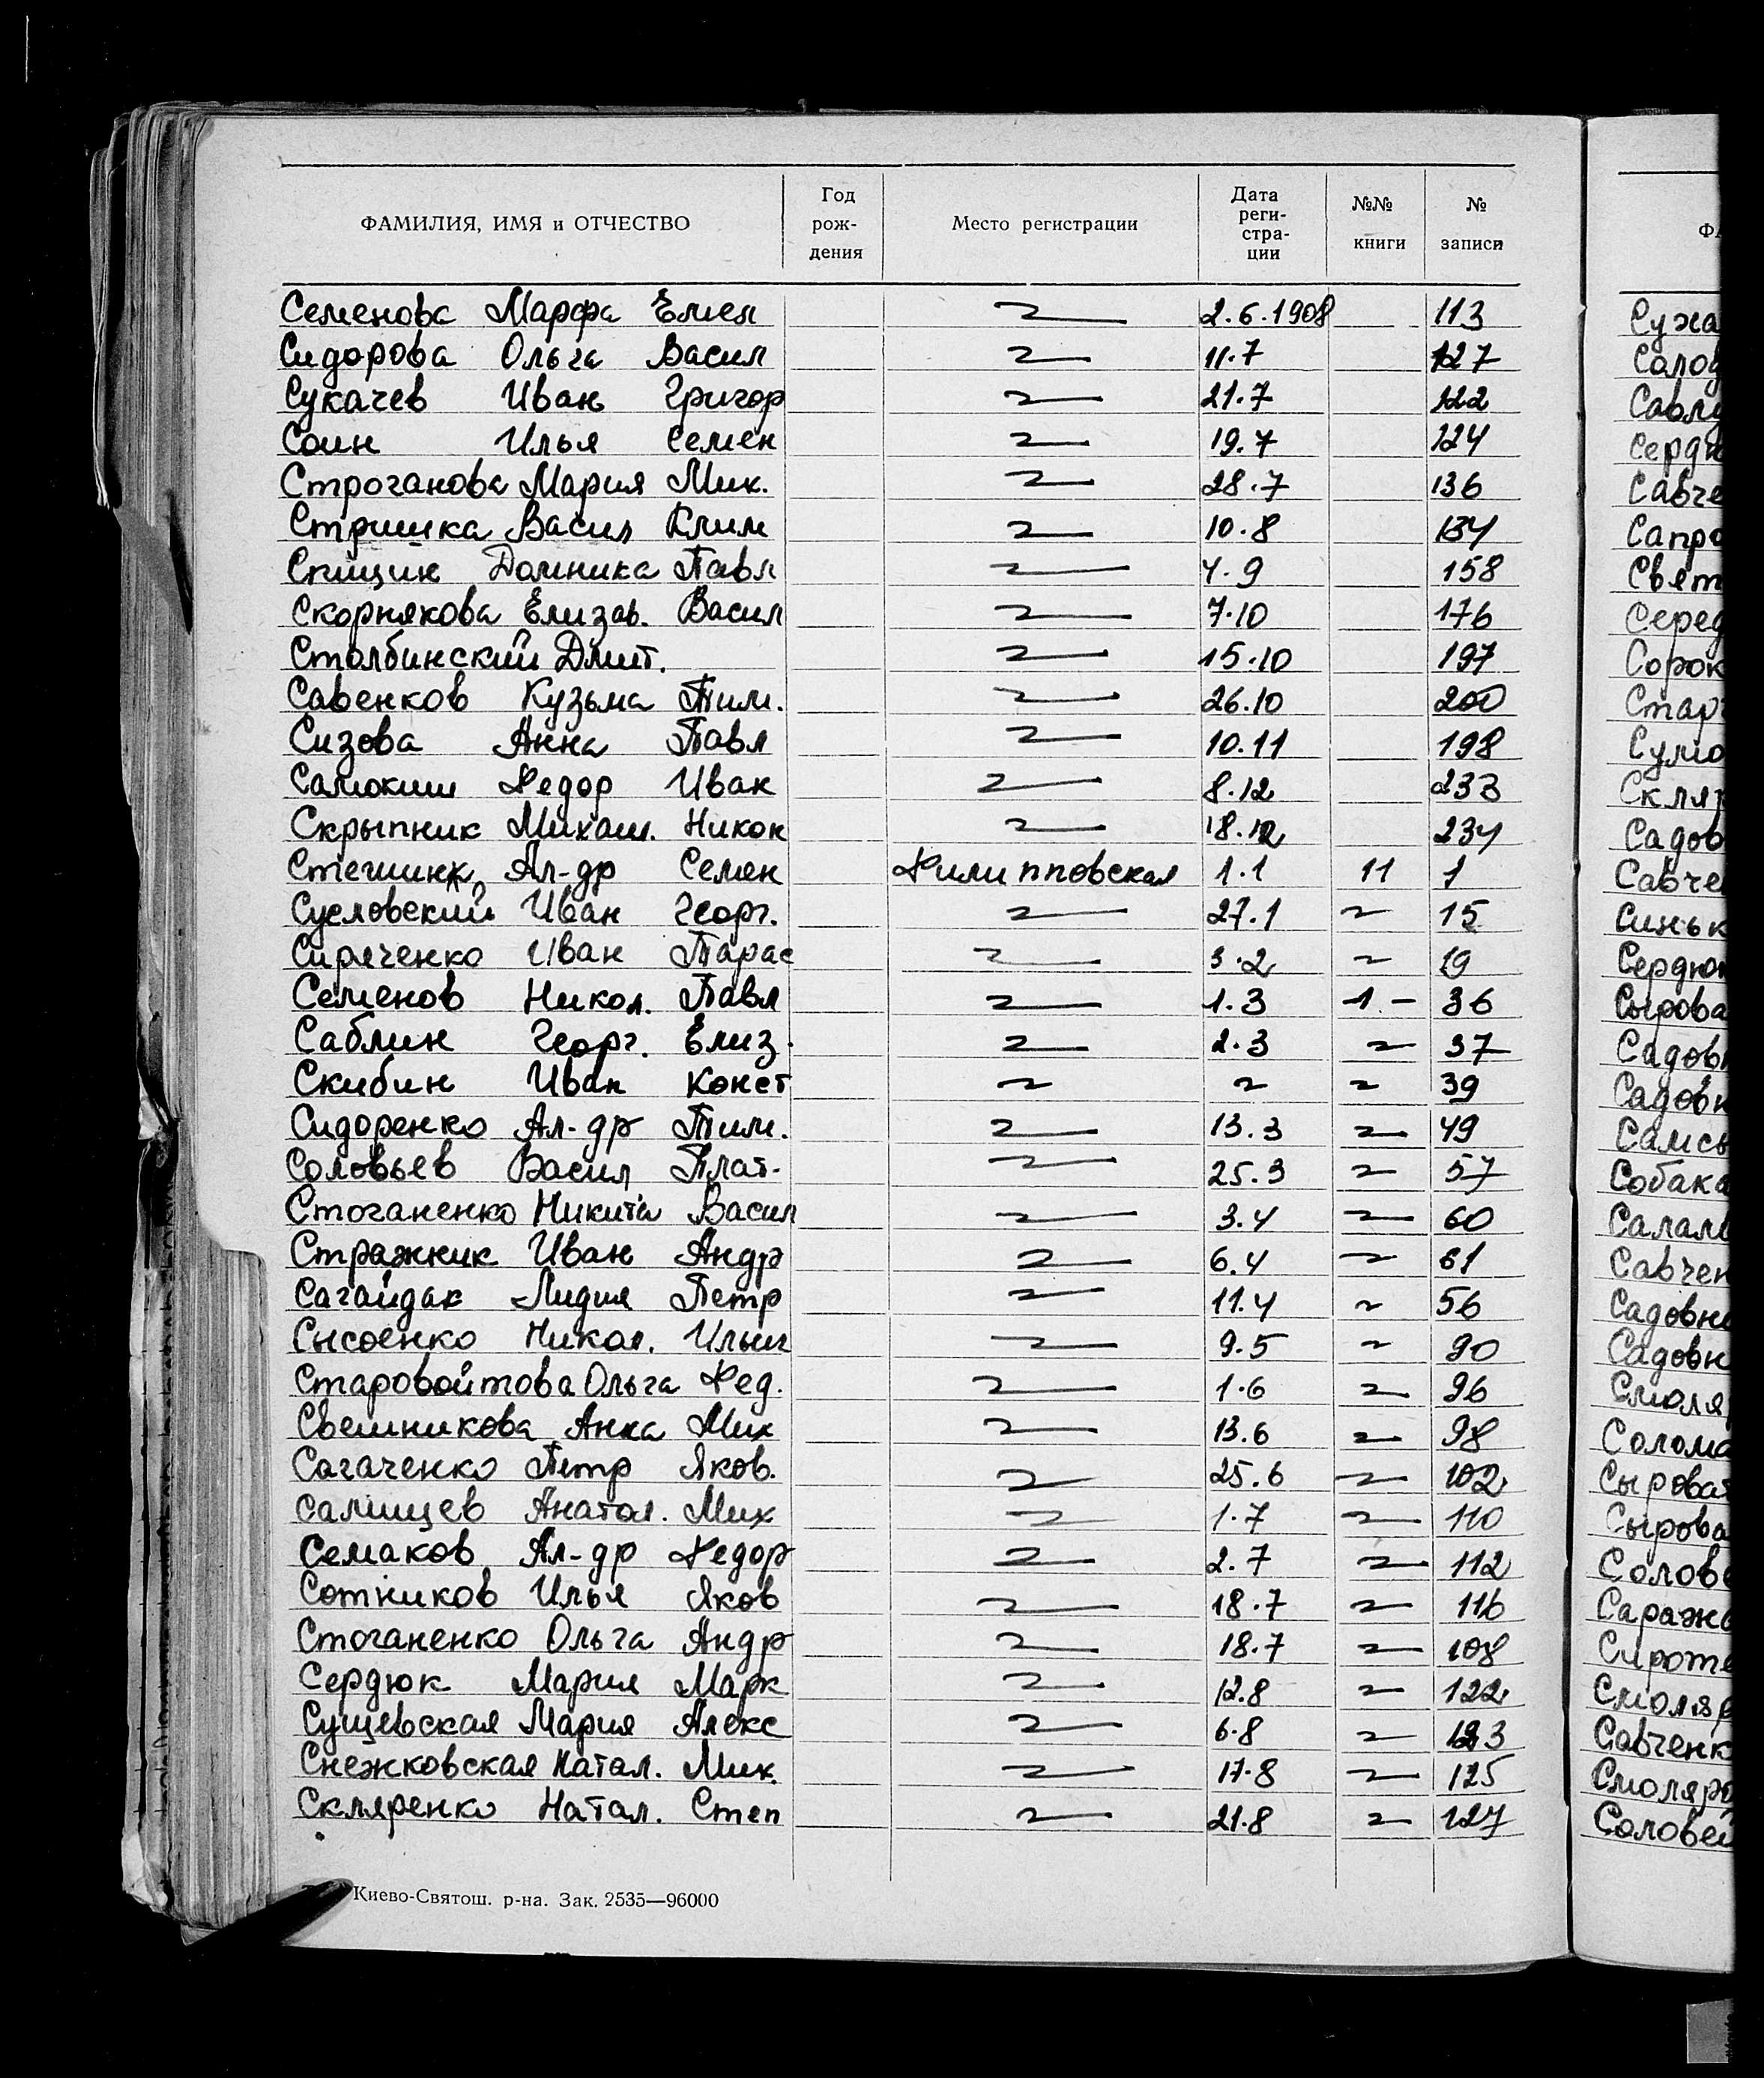 ФАМИЛИЯ, ИМЯ и ОТЧЕСТВО Год рож- дения Место регистрации Дата реги- стра- ции №№ книги № записи
Семенова Марфа Емел 2.6.1908 113
Сидорова Ольга Васил 11.7 127
Сукачев Иван Григор 21.7 122
Соин Илья Семен 19.7 124
Строганова Мария Мик. 28.7 136
Стришка Васил Клим 10.8 134
Спицин Домника Павл 4.9 158
Скорнякова Елизав. Васил 7.10 176
Столбинский Дмит. 15.10 197
Савенков Кузьма Тим. 26.10 200
Сизова Анна Павл 10.11 198
Самокиш Федор Иван 8.12 233
Скрыпник Михаил. Никон 18.12 234
Ал-др Семен Филипповская 1.1 11 1
Сусловский Иван Георг. 27.1 15
Сиряченко Иван Тарас 3.2 19
Семенов Никол. Павл 1.3 -1- 36
Саблин Георг. Елиз. 2.3 37
Скибин Иван Конст 39
Сидоренко Ал-др Тим. 13.3 49
Соловьев Васил Плат. 25.3 57
Стоганенко Никита Васил 3.4 60
Стражник Иван Андр 6.4 61
Сагайдак Лидия Петр 11.4 56
Сысоенко Никол. Ильич 9.5 90
Старовойтова Ольга Фед. 1.6 96
Свешникова Анна Мих 13.6 98
Сагаченко Петр Яков. 25.6 102
Салищев Анатол. Мих 1.7 110
Семаков Ал-др Федор 2.7 112
Сотников Илья Яков 18.7 116
Стоганенко Ольга Андр 18.7 108
Сердюк Мария Марк 12.8 122
Сущевская Мария Алекс 6.8 123
Снежковская Натал. Мик. 17.8 125
Скляренко Натал. Степ 21.8 127
Киево-Святош. р-на. Зак. 2535—96000
ФА
Сужа
Солод
Савлу
Сердю
Савче
Сапро
Свет
Серед
Сорок
Стар
Сумо
Скляр
Садов
Савче
Синьк
Сердюк
Сырова
Садовн
Садовн
Самсо
Собака
Салам
Савчен
Садовн
Садовн
Смоля
Солома
Сыроват
Сырова
Солове
Саража
Сироте
Смоляр
Савченк
Смоляро
Соловей